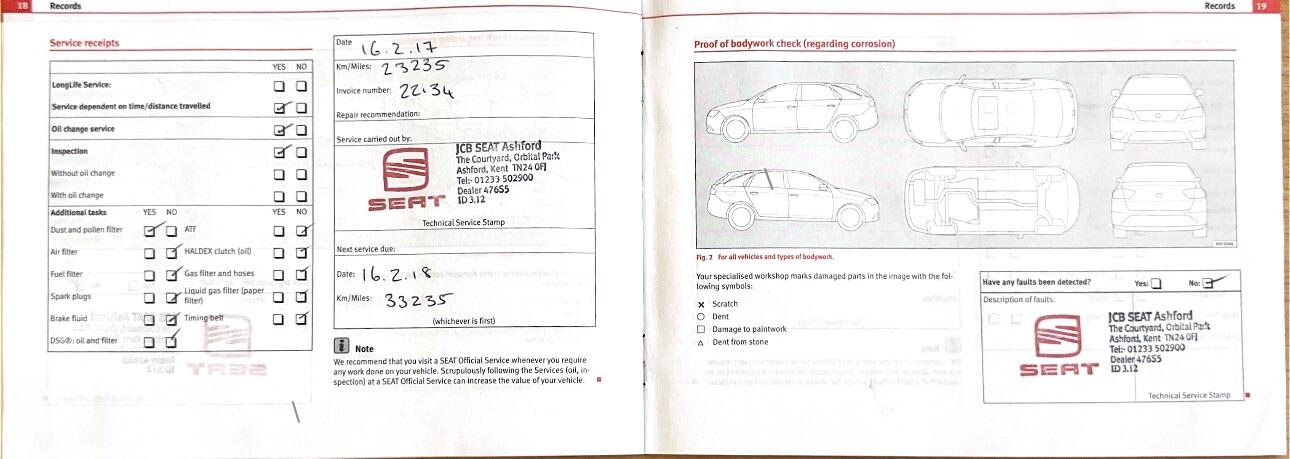 18 Records
Service receipts
YES NO
LongLife Service:
Service dependent on time/distance travelled
Oil change service
Inspection
Without oil change
With oil change
Additional tasks YES NO YES NO
Dust and pollen filter ATF
Air filter HALDEX clutch (oil)
Fuel filter Gas filter and hoses
Spark plugs Liquid gas filter (paper
filter)
Brake fluid Timing belt
DSG®: oil and filter
Date 16.2.17
Km/Miles: 23235
Invoice number: 2234
Repair recommendation:
Service carried out by:
SEAT
JCB SEAT Ashford
The Courtyard, Orbital Park
Ashford, Kent TN24 0FJ
Tel:- 01233 502900
Dealer 47655
ID 3.12
Technical Service Stamp
Next service due:
Date: 16.2.18
Km/Miles: 33235
(whichever is first)
i Note
We recommend that you visit a SEAT Official Service whenever you require
any work done on your vehicle. Scrupulously following the Services (oil, in-
spection) at a SEAT Official Service can increase the value of your vehicle.
Records 19
Proof of bodywork check (regarding corrosion)
Fig. 2 For all vehicles and types of bodywork.
Your specialised workshop marks damaged parts in the image with the fol-
lowing symbols:
× Scratch
○ Dent
□ Damage to paintwork
△ Dent from stone
Have any faults been detected? Yes: No:
Description of faults:
SEAT
JCB SEAT Ashford
The Courtyard, Orbital Park
Ashford, Kent TN24 0FJ
Tel:- 01233 502900
Dealer 47655
ID 3.12
Technical Service Stamp